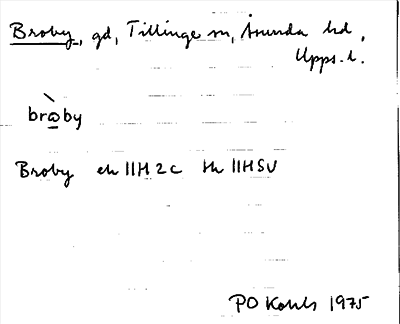 Broby, gd, Tillinge sn, Åsunda hd,
Upps. l.
brò̠by
Broby ek 11H 2c th 11HSV
PO 1975